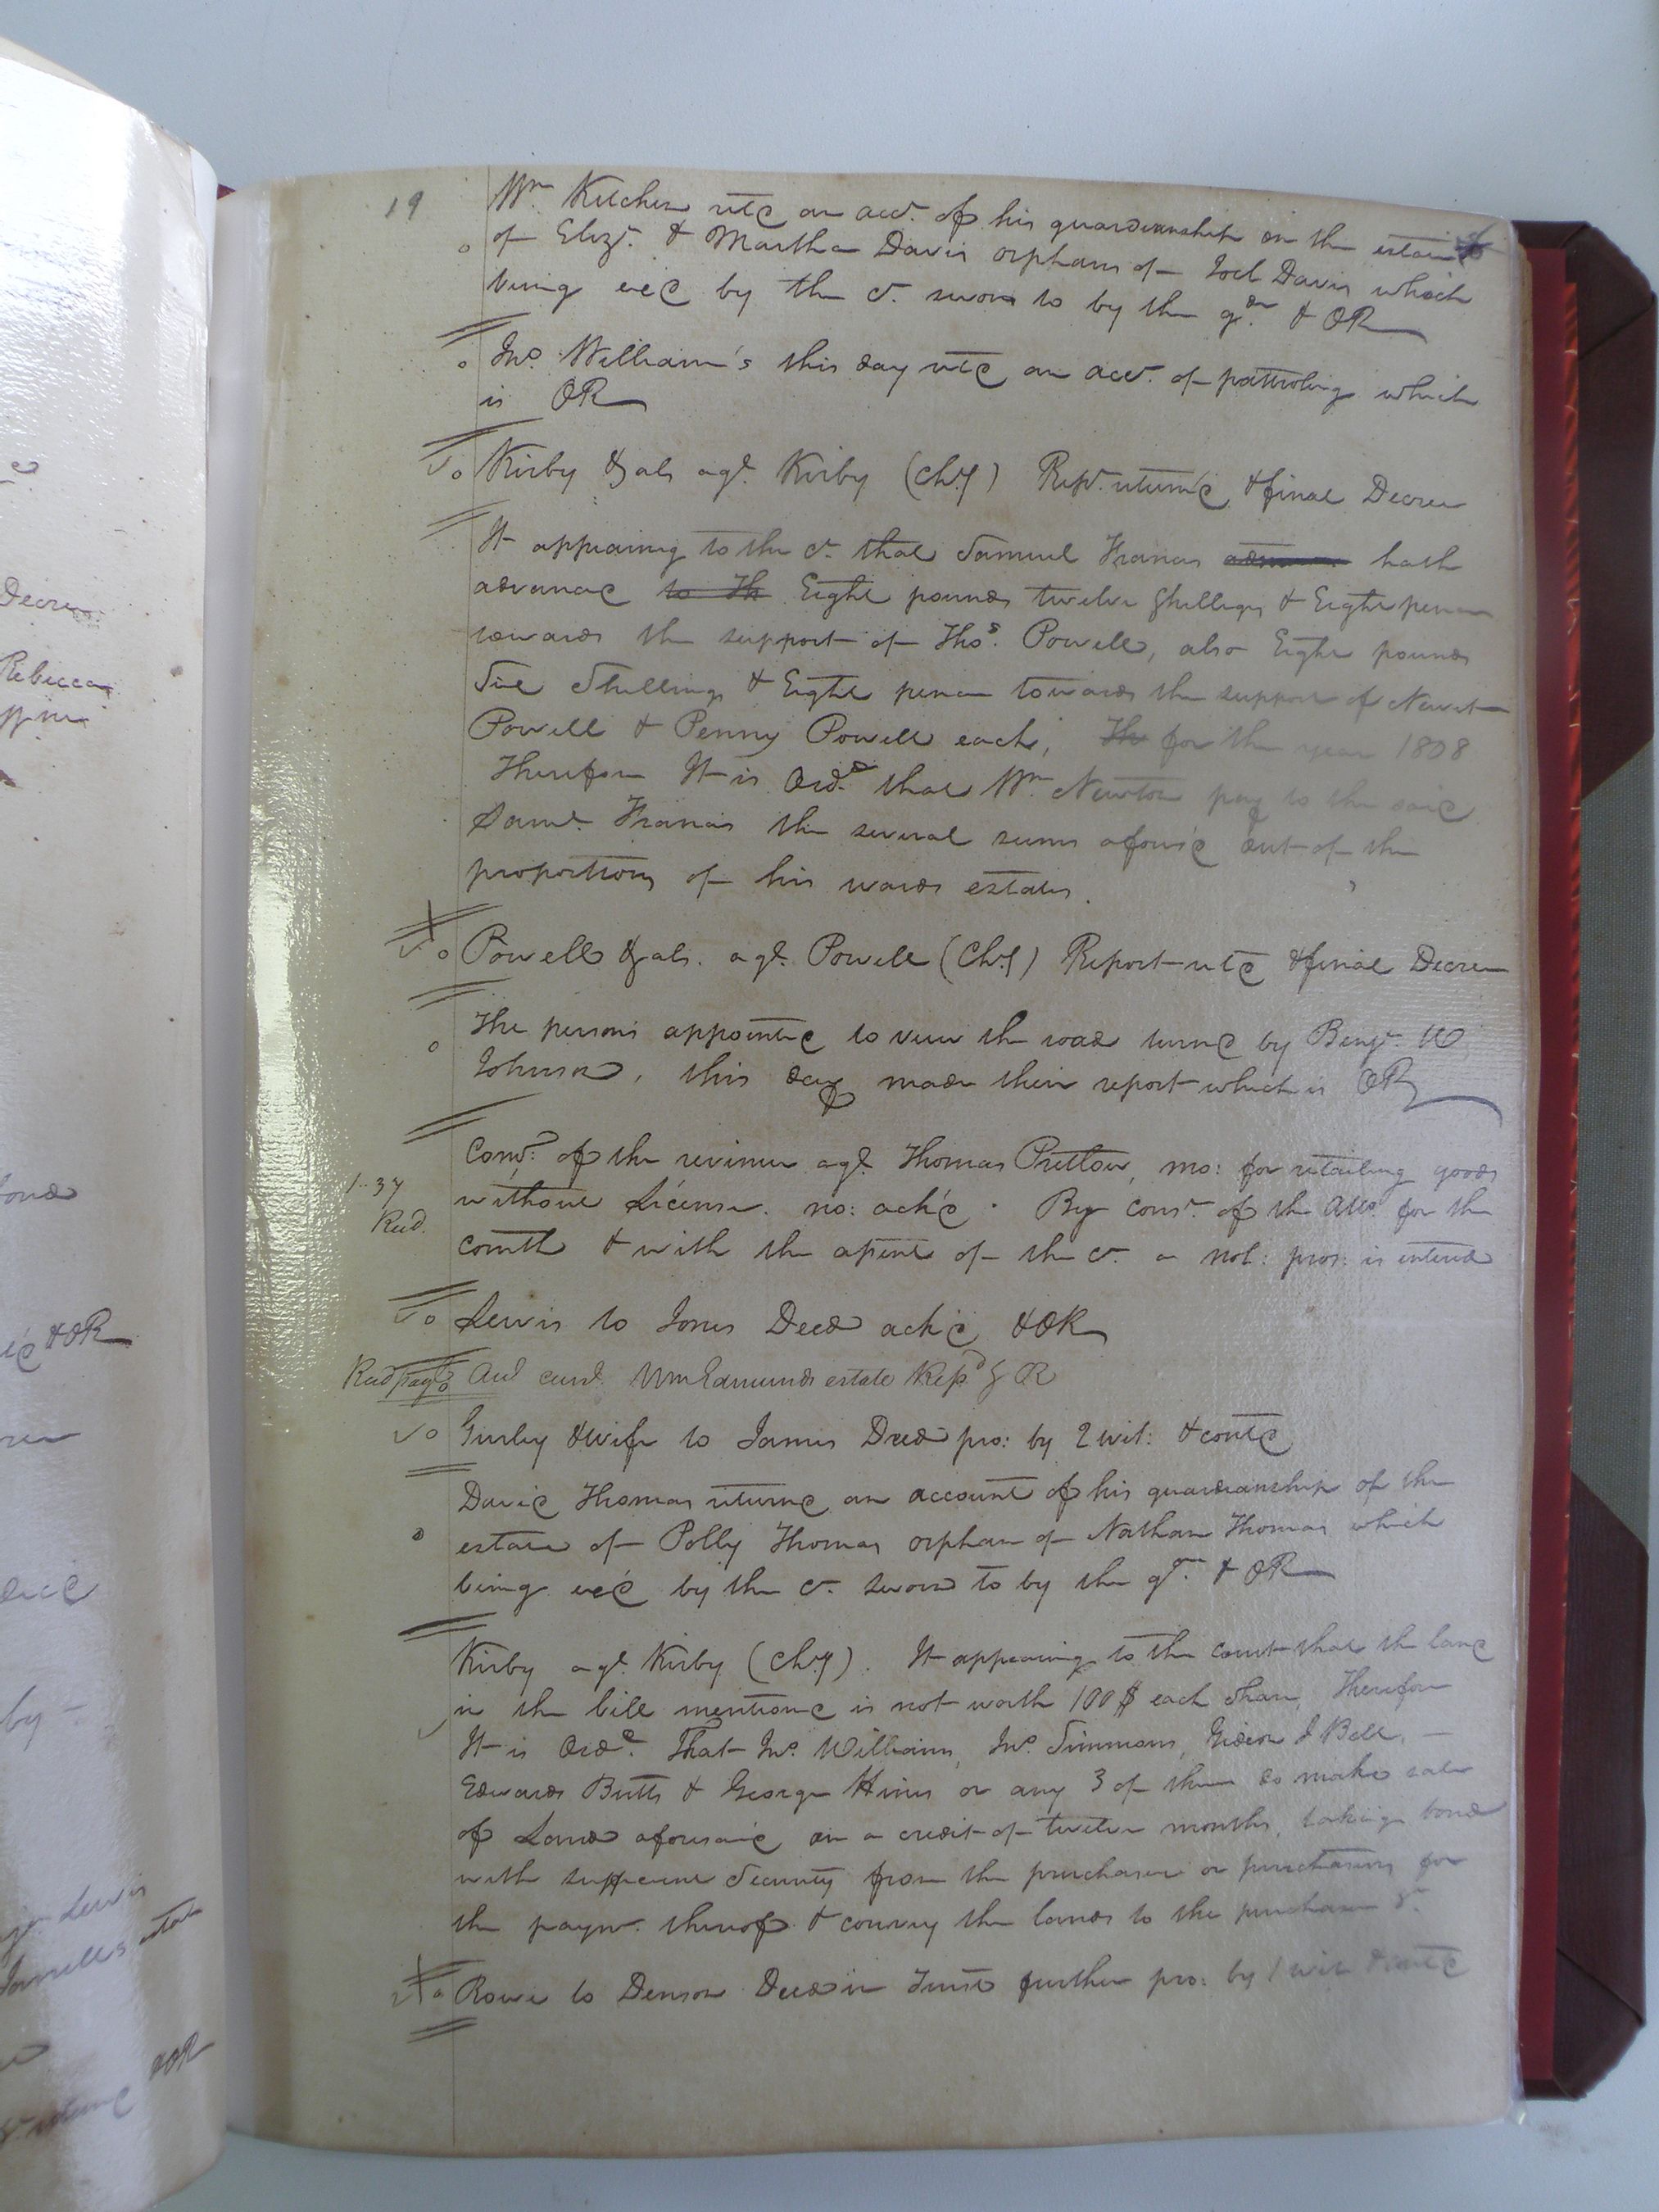 19
Wm Kitchen retd an acct. of his guardianship on the estate
of Elizt. & Martha Davis orphans of Joel Davis which
being exd by the ct. sworn to by the gdn & OR
Jno. William's this day retd an acct. of patroling which
is OR
Kirby & als agt. Kirby (Chy) Rept. returnd & final Decree
It appearing to the ct. that Samuel Francis hath
advancd Eight pounds twelve Shillings & Eight pence
towards the support of Thos. Powell, also Eight pounds
Six Shillings & Eight pence towards the support of Newit
Powell & Penny Powell each, for the year 1808
Therefore It is Ordd. that Wm. Newton pay to the said
Saml. Francis the several sums afores'd out of the
proportions of his wards estates.
Powell & als. agt. Powell (Chy) Report retd & final Decree
The persons appointed to view the road turnd by Benjn. W
Johnson, this day made their report which is OR
Comr. of the revenue agt. Thomas Pretlow, mo: for retailing goods
1..37
without License. no: ack'd. By cons't. of the Atto. for the
Recd.
comth & with the assent of the ct. a nol: pros: is enterd
Lewis to Jones Deed ack'd & OR
Aud curt. Wm Edmunds estate Repd & OR
Gurley & wife to James Deed pro: by 2 wit: & contd
David Thomas returnd an account of his guardianship of the
estate of Polly Thomas orphan of Nathan Thomas which
being exd by the ct. sworn to by the gn. & OR
Kirby agt. Kirby (Chy). It appearing to the court that the land
in the bill mentiond is not worth 100$ each share, Therefore
It is Ordd. That Jno. Williams, Jno. Simmons, Gideon J Bell,
Edwards Butts & George Hines or any 3 of them do make sale
of Land aforesaid on a credit of twelve months, taking bond
with sufficient Security from the purchaser or purchasers for
the paymt. thereof & convey the lands to the purchaser &c.
Rowe to Denson Deed in Trust further pro: by 1 wit & contd